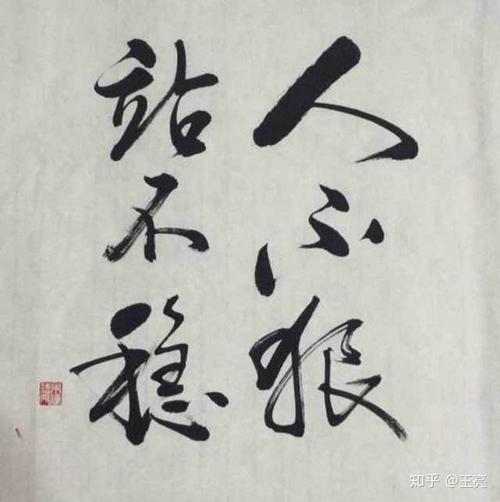 人不狠
站不稳
知乎 @王亮